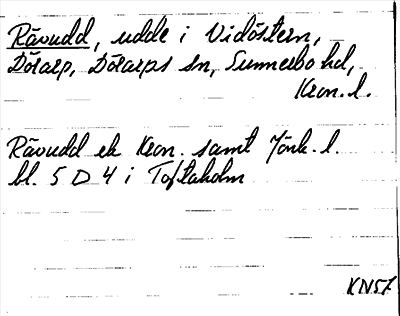 Rävudd, udde i Vidöstern,
Dörarp, Dörarps sn, Sunnerbo hd,
Kron. l.
Rävudd ek Kron. samt Jönk. l.
bl. 5 D 4 i Toftaholm
KN57